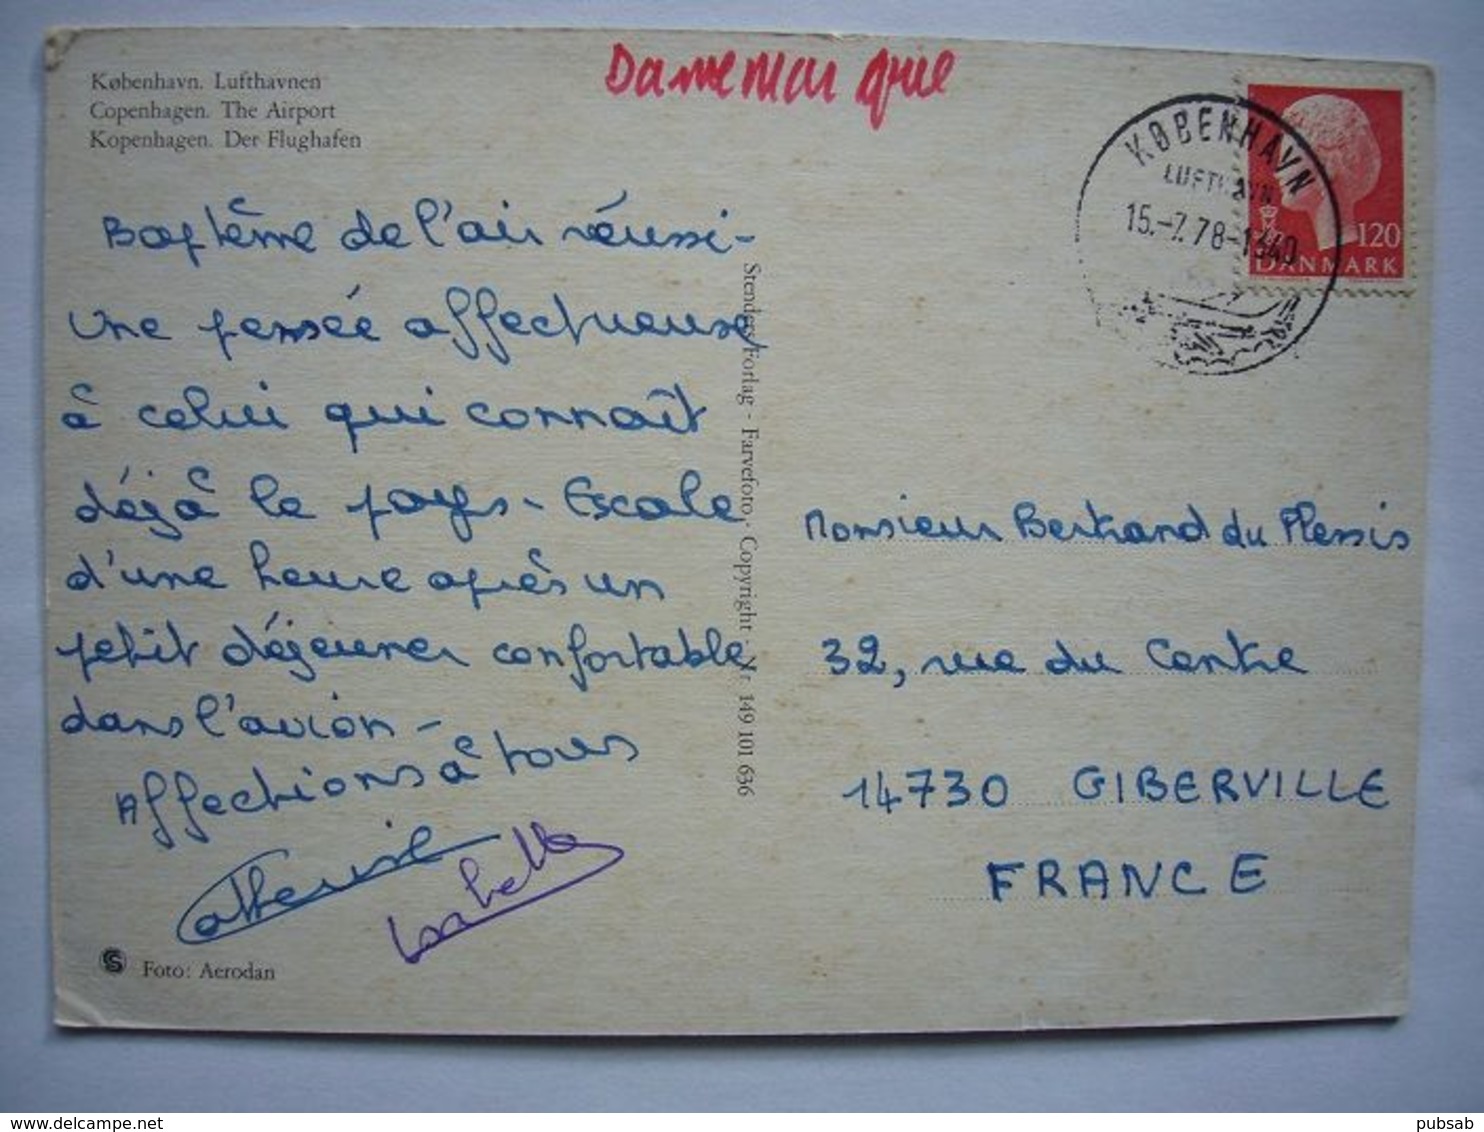 København. Lufthavnen
Copenhagen. The Airport
Kopenhagen. Der Flughafen
Danemarque
KØBENHAVN
LUFTHAVN
15.-7.78-1340
120
DANMARK
Baptême de l'air réussi-
Une pensée affectueuse
à celui qui connaît
déjà le pays - Escale
d'une heure après un
petit déjeuner confortable
dans l'avion -
Affections à tous
Catherine
Isabelle
Stenders Forlag - Farvefoto - Copyright - Nr. 149 101 636
Monsieur Bertrand du Plessis
32, rue du Centre
14730 GIBERVILLE
FRANCE
S Foto: Aerodan
pubsab